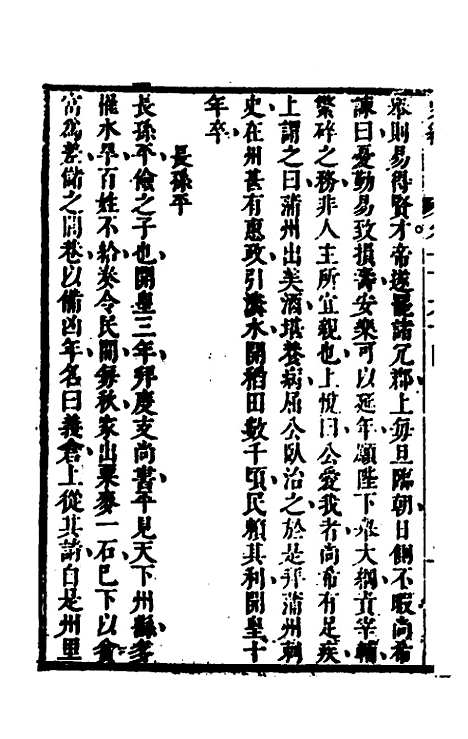 舉則易得賢才帝遂罷諸冗郡上毎旦臨朝日側不暇尚希
諫曰憂勤易致損壽安樂可以延年願陛下舉大綱責宰輔
繁碎之務非人主所宜親也上恱曰公愛我者尚希有足疾
上謂之曰蒲州出美酒堪養病屈公臥治之於是拜蒲州刺
史在州甚有惠政引瀵水開稻田數千頃民賴其利開皇十
年卒
長孫平
長孫平儉之子也開皇三年拜度支尚書平見天下州縣多
罹水旱百姓不給奏令民間毎秋家出粟麥一石巳下以貧
富爲差儲之閭巷以備凶年名曰義倉上從其請自是州里